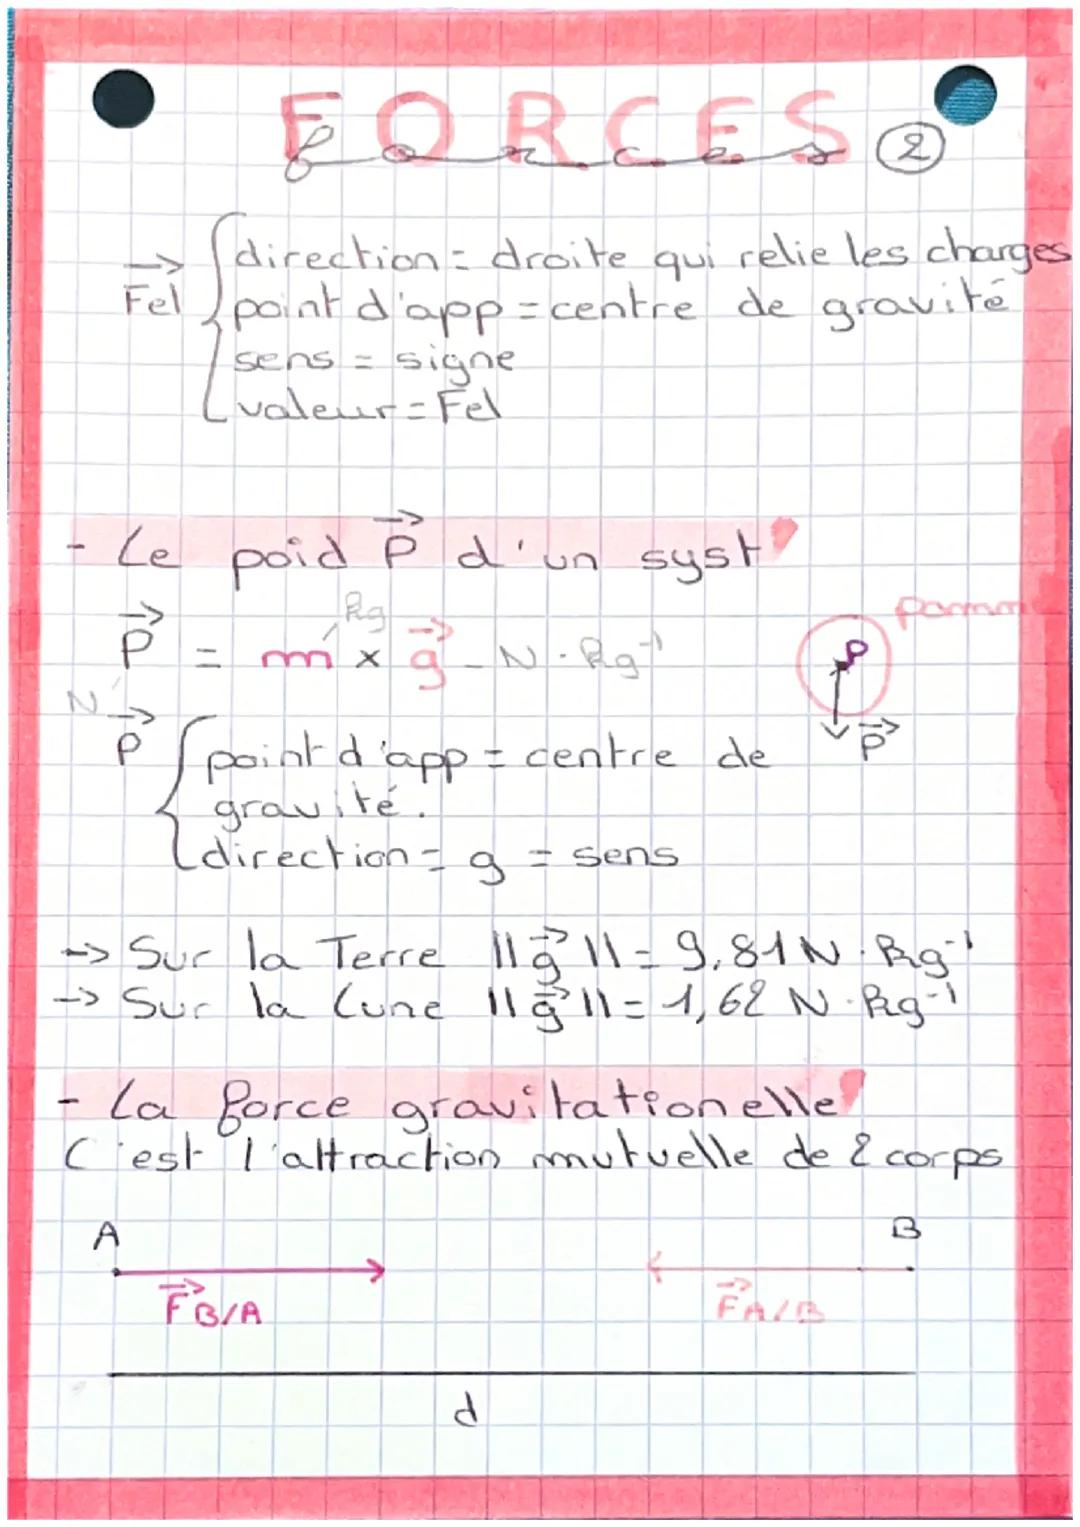 FORCES
forces 2
direction = droite qui relie les charges
Fel
point d'app = centre de gravité
sens = signe
valeur = Fel
- Le poid P d'un syst
kg
P = m x g - N · kg⁻¹
N
pomm
P
P
P
point d'app = centre de
gravité.
direction = g = sens
-> Sur la Terre ||g|| = 9,81 N · kg⁻¹
-> Sur la Lune ||g|| = 1,62 N · kg⁻¹
- La force gravitationelle
C'est l'attraction mutuelle de 2 corps
A B
F B/A F A/B
d